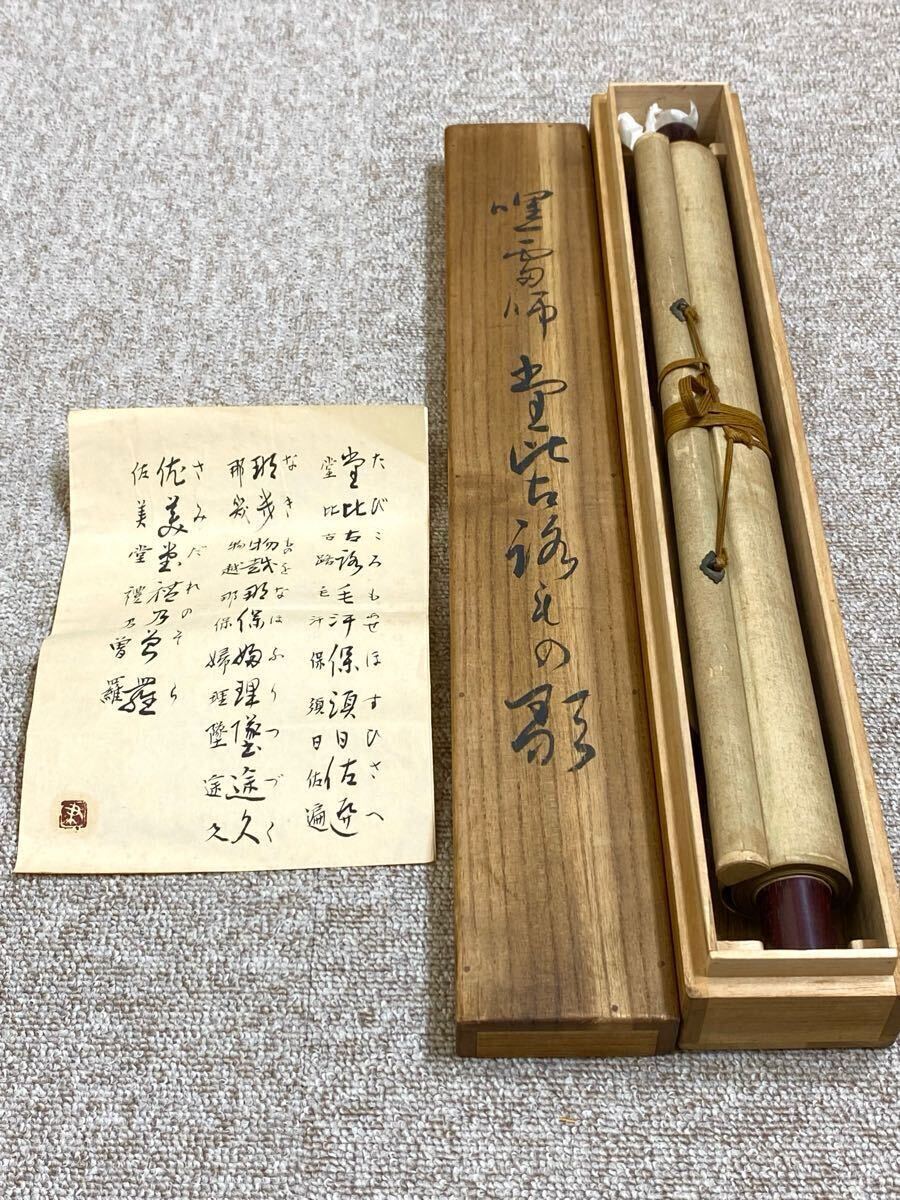 嘿雷師 堂比古路毛の歌
たびころもあせほすひさへ
堂比古路毛汗保須日佐遍
堂比古路毛汗保須日佐遍
なきものをなほふりつづく
那幾物越那保婦理墜途久
那幾物越那保婦理墜途久
さみだれのそら
佐美堂禮乃曾羅
佐美堂禮乃曾羅